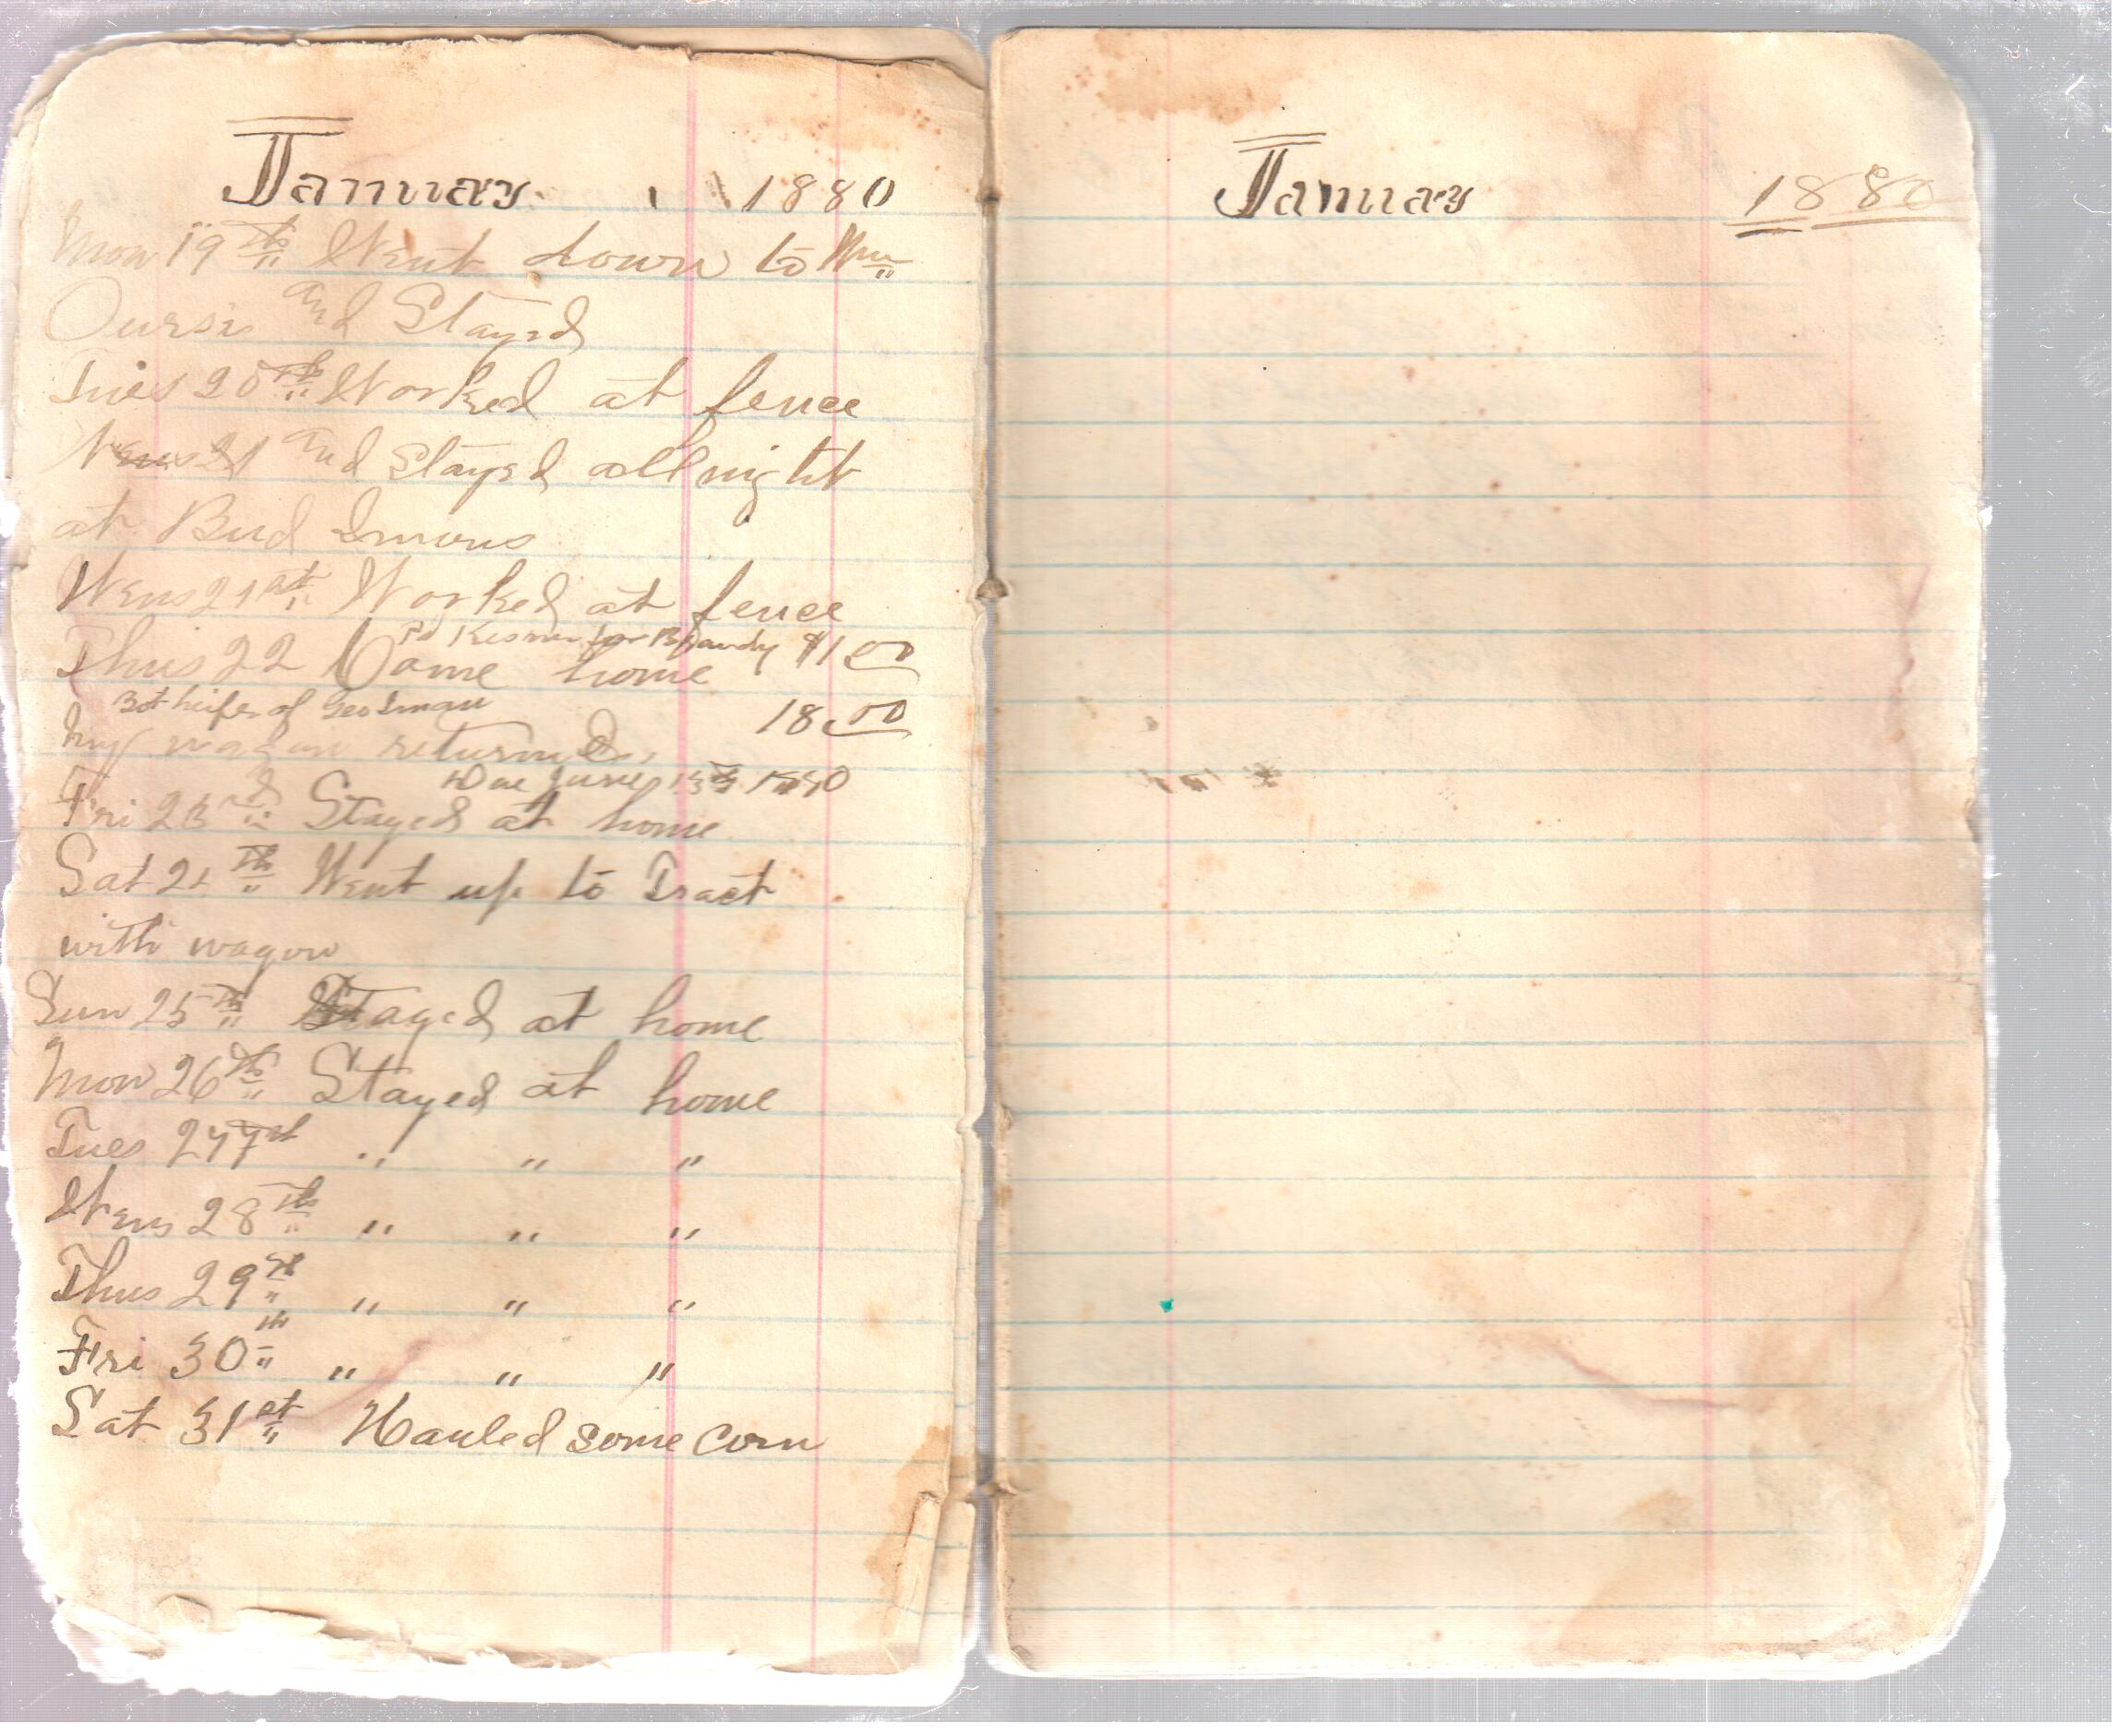 January 1880
Mon 19th Went down to Wm
and Stayed
Tues 20th Worked at fence
and Stayed all night
at Bud Inmons
Wens 21st Worked at fence
Pd for Brandy $1.00
Thus 22 Came home
Bot heifer of Geo Inman 18.00
my wagon returned
Due June 1880
Fri 23rd Stayed at home
Sat 24th Went up to Tract
with wagon
Sun 25th Stayed at home
Mon 26th Stayed at home
Tues 27th " " "
Wens 28th " " "
Thus 29th " " "
Fri 30th " " "
Sat 31st Hauled some corn
January 1880